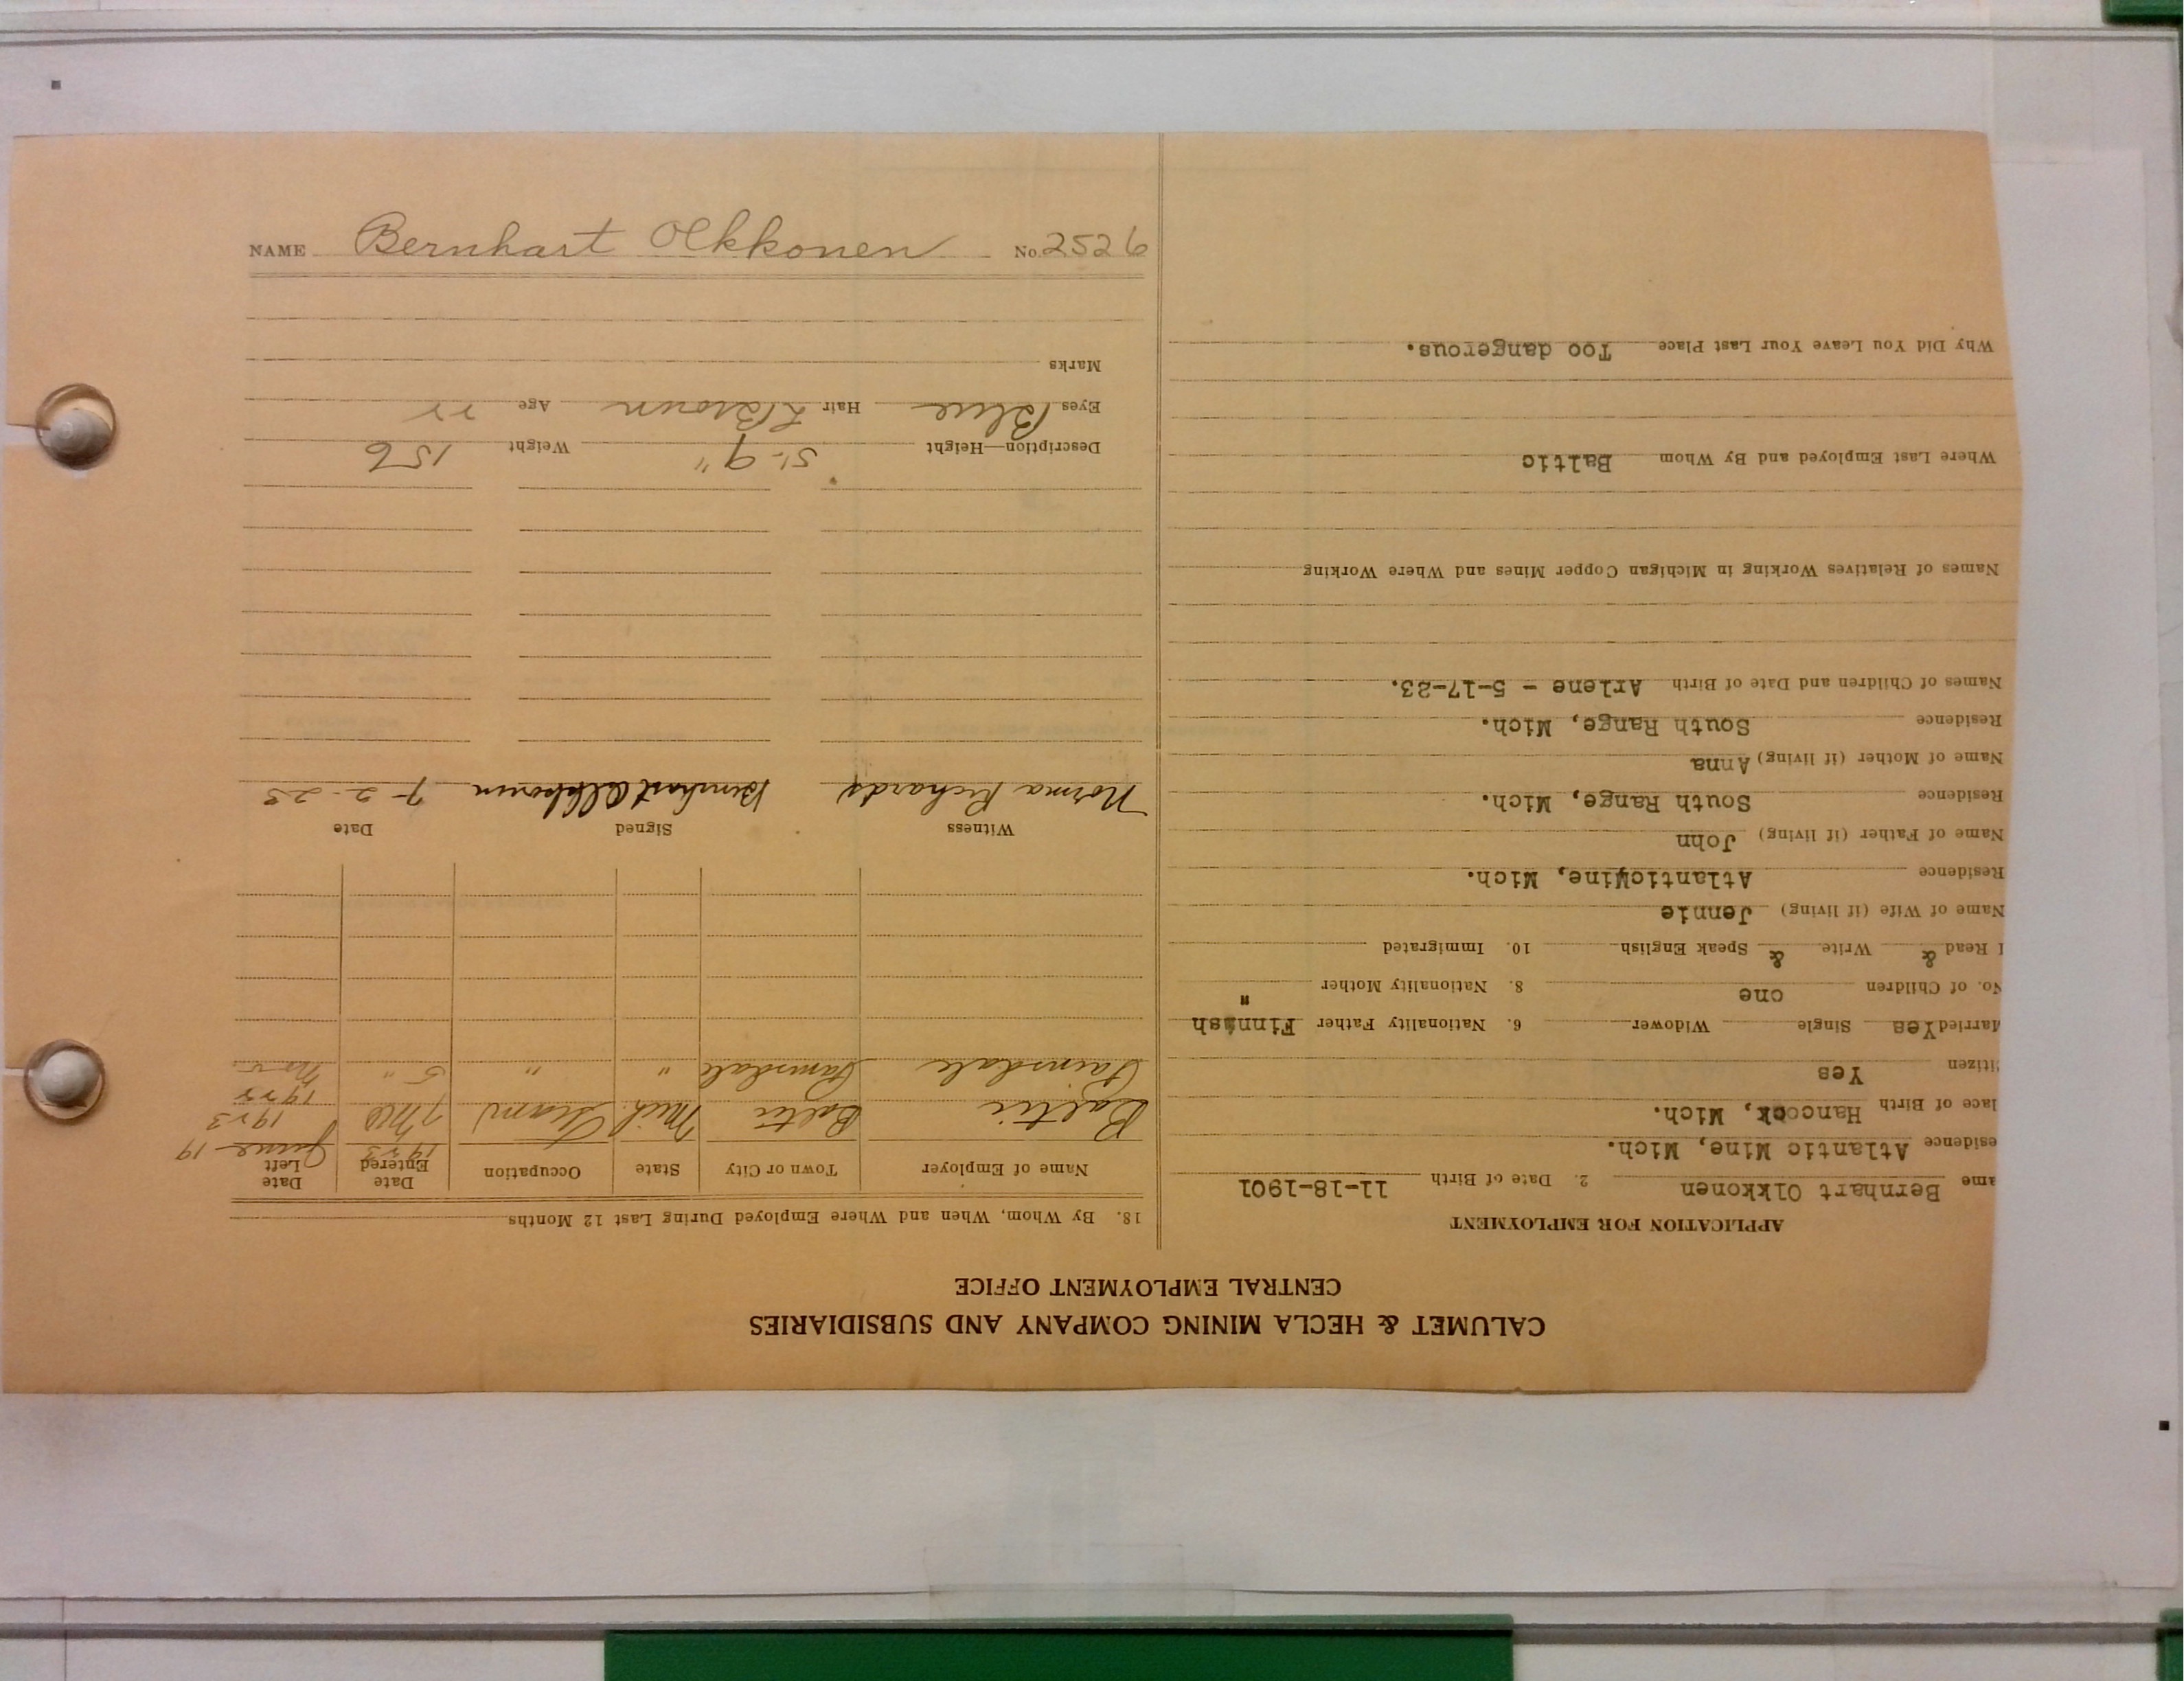 CALUMET & HECLA MINING COMPANY AND SUBSIDIARIES
CENTRAL EMPLOYMENT OFFICE
APPLICATION FOR EMPLOYMENT
ame Bernhart Olkkonen 2. Date of Birth 11-18-1901
esidence Atlantic Mine, Mich.
lace of Birth Hancock, Mich.
itizen Yes
Married Yes Single Widower 6. Nationality Father Finnish
No. of Children one 8. Nationality Mother "
I Read & Write & Speak English 10. Immigrated
Name of Wife (if living) Jennie
Residence AtlanticMine, Mich.
Name of Father (if living) John
Residence South Range, Mich.
Name of Mother (if living) Anna
Residence South Range, Mich.
Names of Children and Date of Birth Arlene - 5-17-23.
Names of Relatives Working in Michigan Copper Mines and Where Working
Where Last Employed and By Whom Baltic
Why Did You Leave Your Last Place Too dangerous.
18. By Whom, When and Where Employed During Last 12 Months
Name of Employer Town or City State Occupation Date Entered Date Left
Baltic Baltic Mich. Tram 1923 June 19 1923
" " 5 " 1922
Witness Signed Date
Norma Richards Bernhart Olkkonen 7-2-23
Description—Height 5'-9" Weight 156
Eyes Blue Hair L Brown Age 22
Marks
NAME Bernhart Olkkonen No. 2526